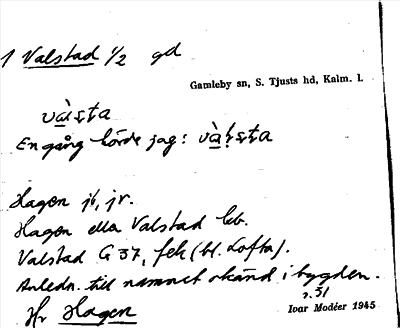 1 Valstad 1/2 gd
Gamleby sn, S. Tjusts hd, Kalm. l.
En gång hörde jag:
Hagen jb, jr.
Hagen ella Valstad lbr.
Valstad G 37, fek (bl. Lofta).
Anledn. till namnet okänd i bygden.
s. 51
Hr Hagen
Ivar Modéer 1945